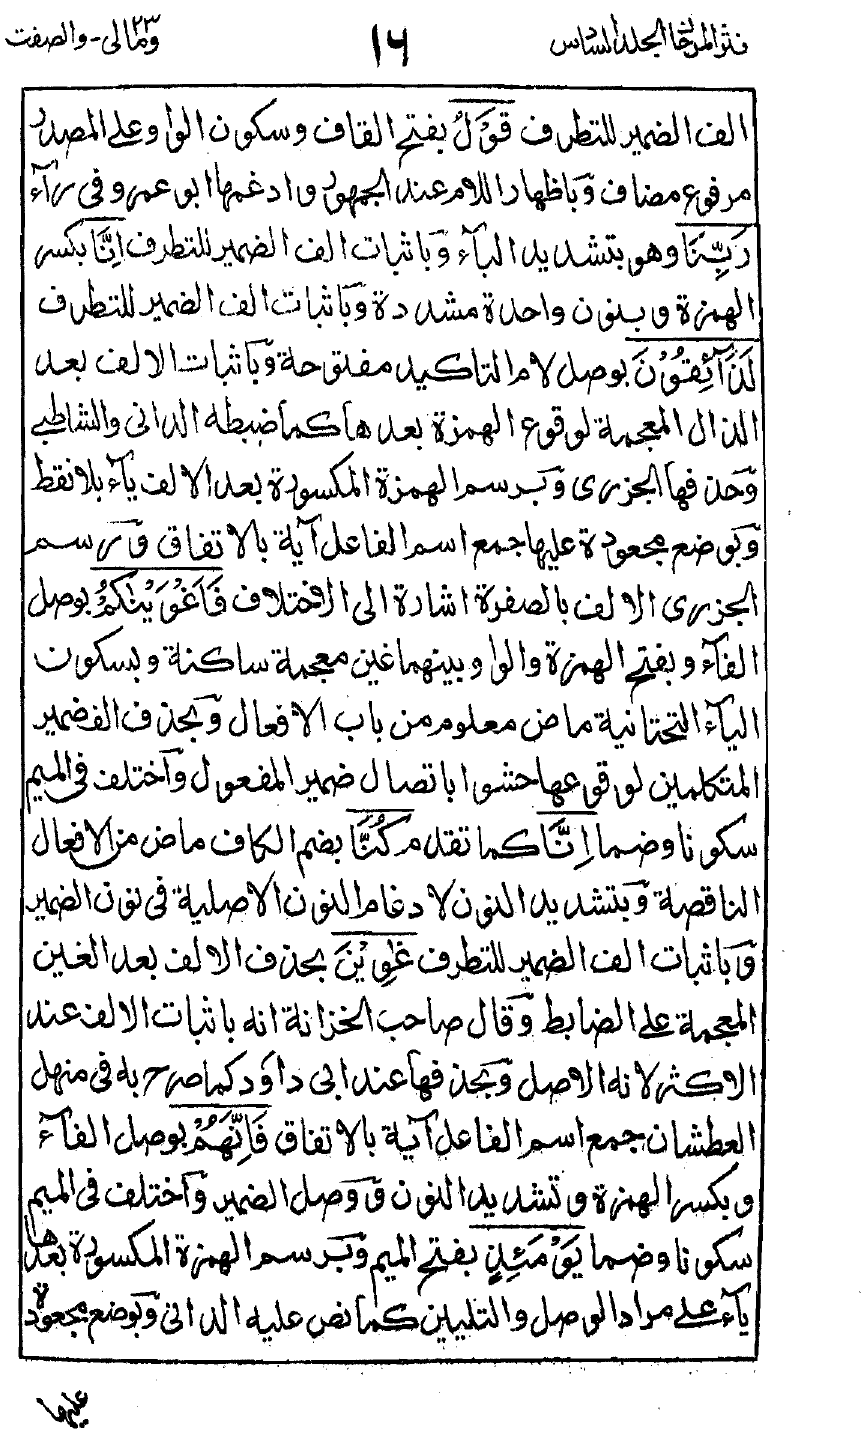 نثر المرجان الجلد السادس ١٦ ومالى ٢٣ - والصفت
الف الضمير للتطرف قَوْلُ بفتح القاف وسكون الواو على المصدر
مرفوع مضاف وباظهار اللام عند الجمهور وادغمها ابو عمرو فى رآء
رَبِّنَا وهو بتشديد البآء وباثبات الف الضمير للتطرف اِنَّا بكسر
الهمزة وبنون واحدة مشددة وباثبات الف الضمير للتطرف
لَذَآئِقُوْنَ بوصل لام التاكيد مفتوحة وباثبات الالف بعد
الذال المعجمة لوقوع الهمزة بعدها كما ضبطه الدانى والشاطبى
وحذفها الجزرى وبرسم الهمزة المكسورة بعد الالف يآء بلا نقط
وبوضع مجعودة عليها جمع اسم الفاعل آية بالاتفاق ورسم
الجزرى الالف بالصفرة اشارة الى الاختلاف فَاَغْوَيْنٰكُمْ بوصل
الفآء وبفتح الهمزة والواو بينهما غين معجمة ساكنة وبسكون
اليآء التحتانية ماض معلوم من باب الافعال وبحذف الف ضمير
المتكلمين لوقوعها حشوا باتصال ضمير المفعول واختلف فى الميم
سكونا وضما اِنَّا كما تقدم كُنَّا بضم الكاف ماض من الافعال
الناقصة وبتشديد النون لادغام النون الاصلية فى نون الضمير
وباثبات الف الضمير للتطرف غٰوِيْنَ بحذف الالف بعد الغين
المعجمة على الضابط وقال صاحب الخزانة انه باثبات الالف عند
الاكثر لانه الاصل وبحذفها عند ابى داود كما صرح به فى منهل
العطشان جمع اسم الفاعل آية بالاتفاق فَاِنَّهُمْ بوصل الفآء
وبكسر الهمزة وتشديد النون ووصل الضمير واختلف فى الميم
سكونا وضما يَوْمَئِذٍ بفتح الميم وبرسم الهمزة المكسورة بعدها
يآء على مراد الوصل والتليين كما نص عليه الدانى وبوضع مجعودة
عليها